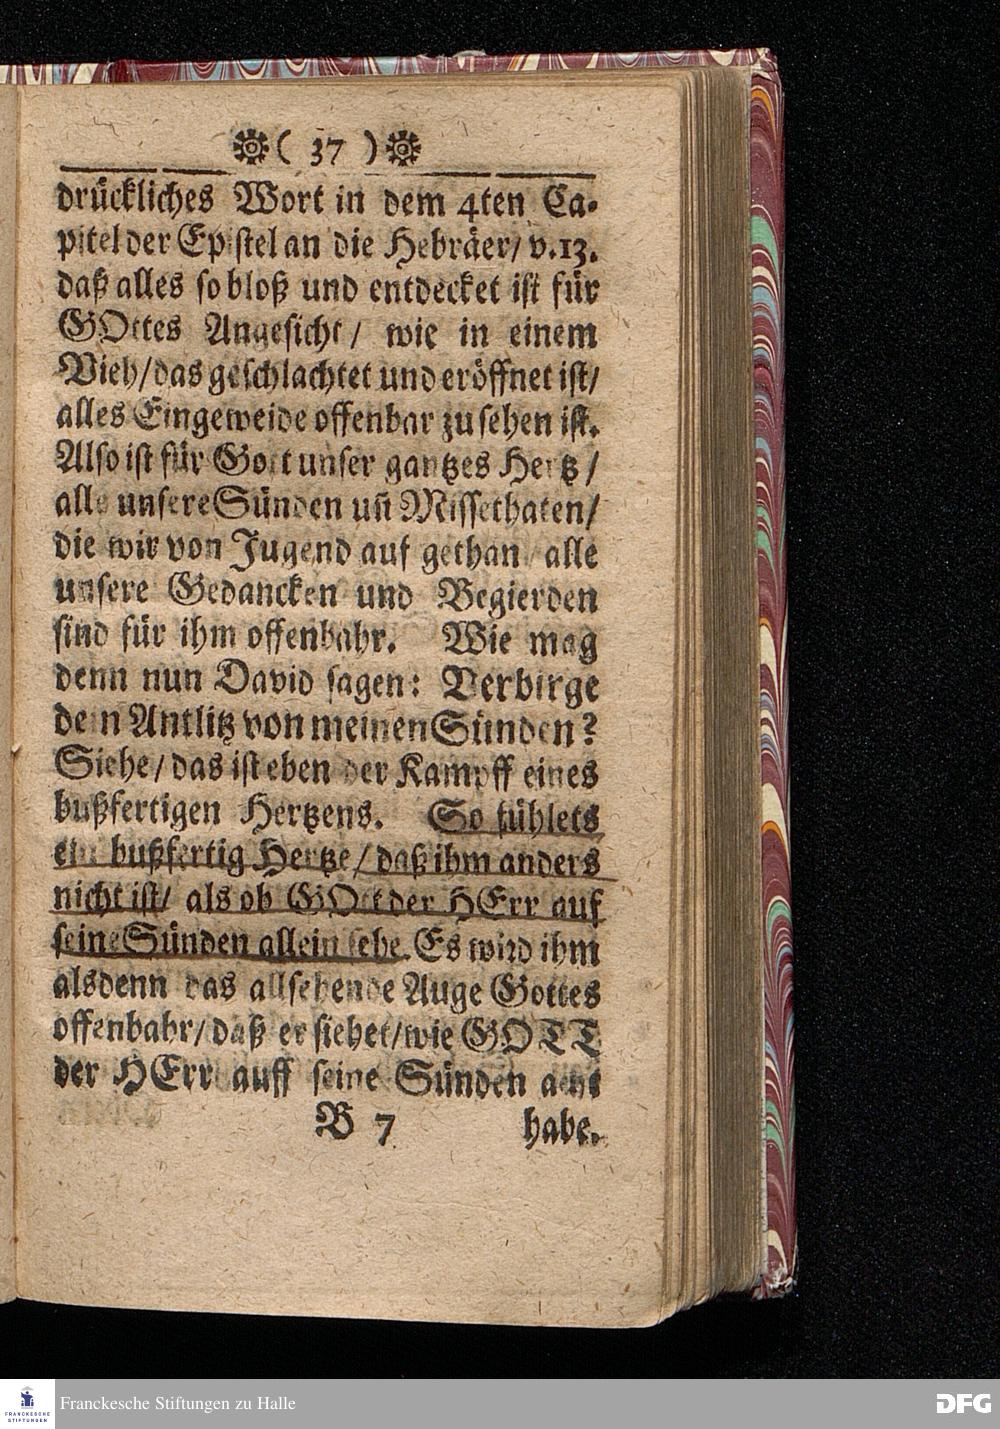 ( 37 )
drückliches Wort in dem 4ten Ca-
pitel der Epistel an die Hebräer/ v.13.
daß alles so bloß und entdecket ist für
GOttes Angesicht/ wie in einem
Vieh/das geschlachtet und eröffnet ist/
alles Eingeweide offenbar zu sehen ist.
Also ist für Gott unser gantzes Hertz/
alle unsere Sünden uñ Missethaten/
die wir von Jugend auf gethan/ alle
unsere Gedancken und Begierden
sind für ihm offenbahr. Wie mag
denn nun David sagen: Verbirge
dein Antlitz von meinen Sünden?
Siehe/das ist eben der Kampff eines
bußfertigen Hertzens. So fühlets
ein bußfertig Hertze/daß ihm anders
nicht ist/ als ob GOtt der HErr auf
seine Sünden allein sehe. Es wird ihm
alsdenn das allsehende Auge Gottes
offenbahr/daß er siehet/wie GOTT
der HErr auff seine Sünden acht
B 7 habe.
FRANCKESCHE STIFTUNGEN
Franckesche Stiftungen zu Halle
DFG